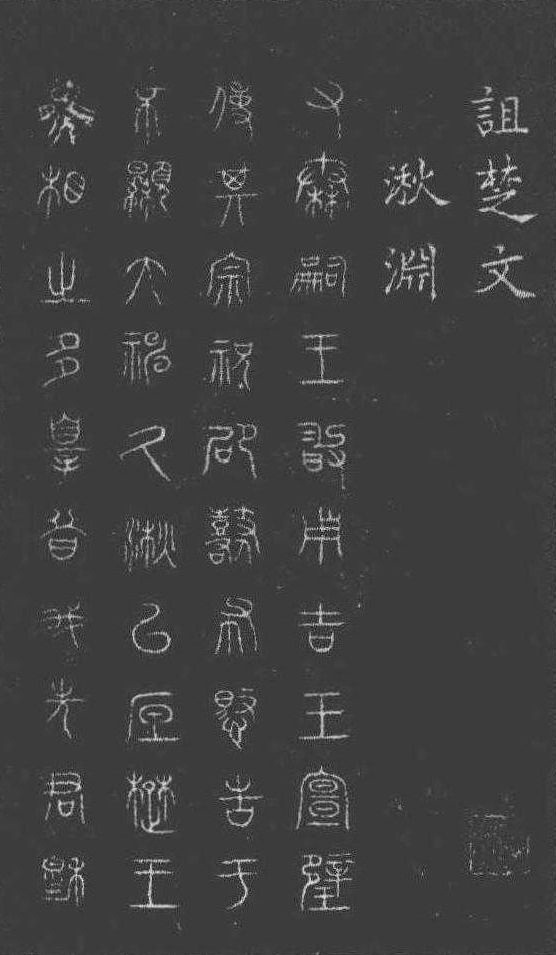 詛楚文
湫淵
又秦嗣王敢用吉玉宣璧
使其宗祝邵鼛布憝告于
不顯大神久湫㠯底楚王
熊相之多辠昔我先君穆